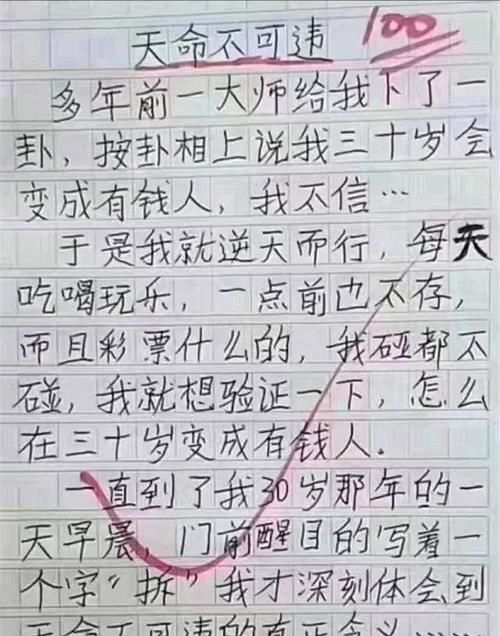 天命不可违
100
多年前一大师给我下了一
卦，按卦相上说我三十岁会
变成有钱人，我不信…
于是我就逆天而行，每天
吃喝玩乐，一点前也不存，
而且彩票什么的，我碰都不
碰，我就想验证一下，怎么
在三十岁变成有钱人.
一直到了我30岁那年的一
天早晨，门前醒目的写着一
个字“拆”我才深刻体会到
天命不可违的真正含义……